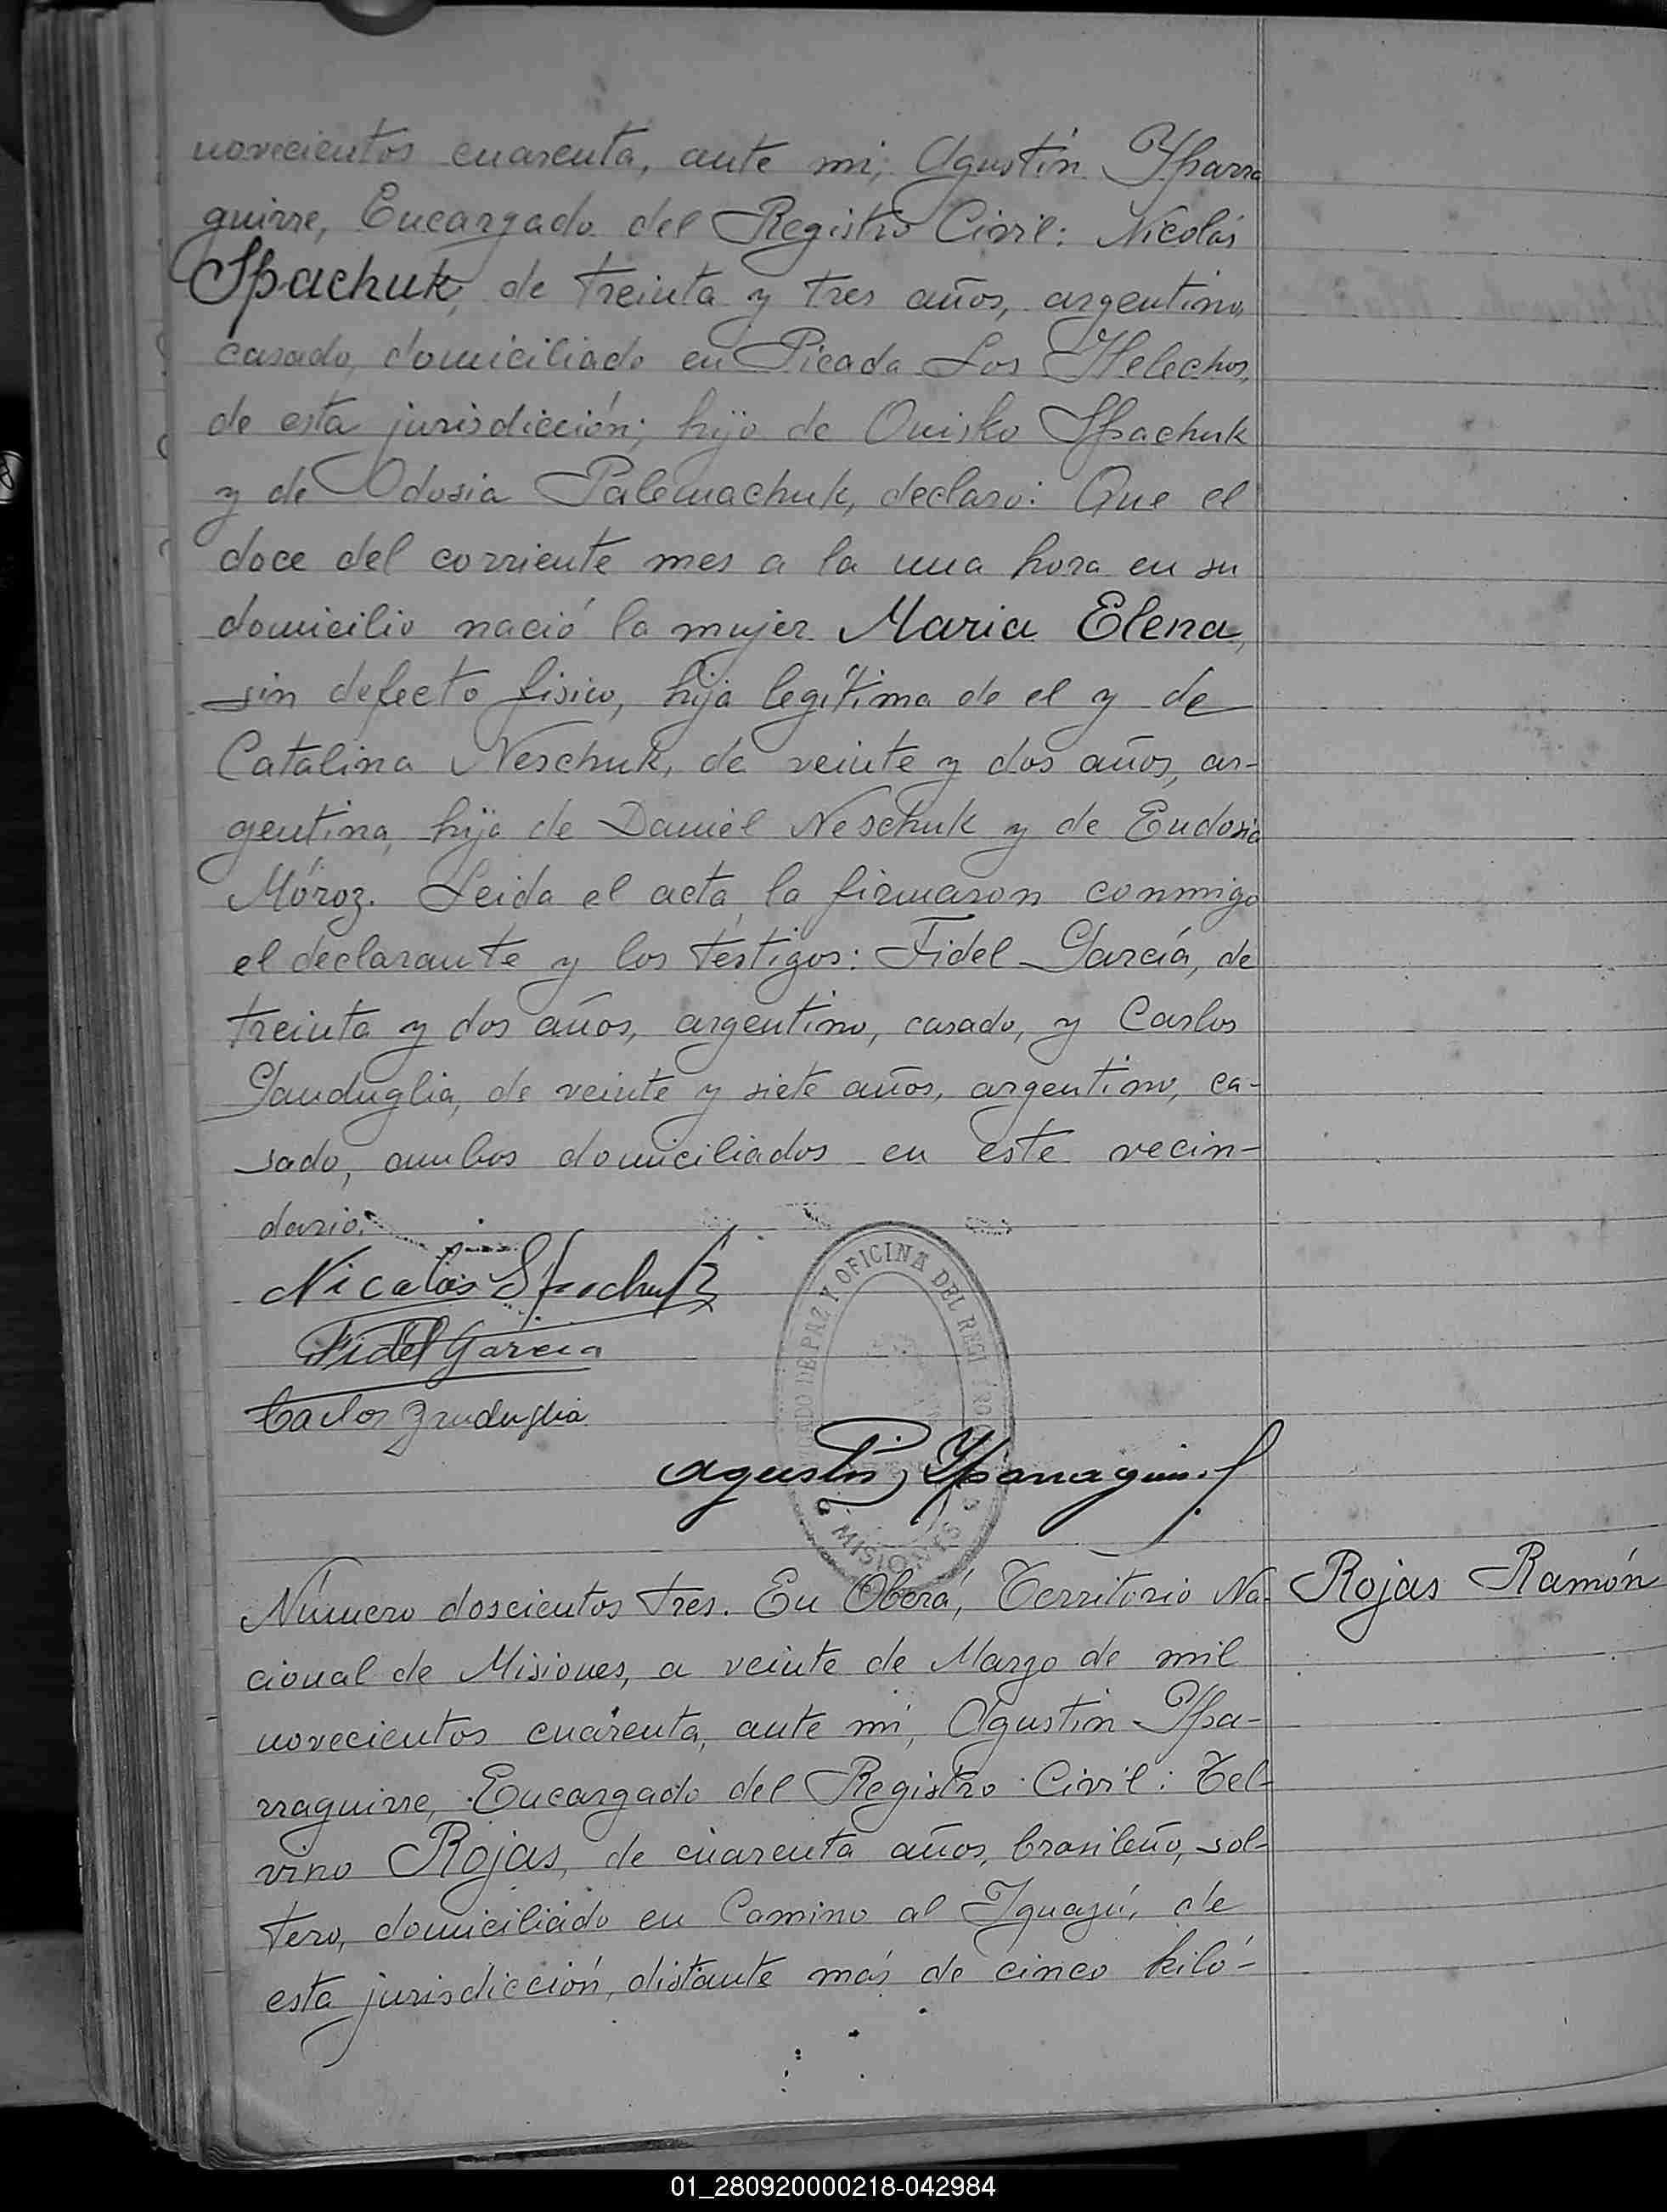 novecientos cuarenta, ante mi, Agustin Yparra
guirre, Encargado del Registro Civil: Nicolás
Spachuk, de treinta y tres años, argentino,
casado, domiciliado en Picada Los Helechos,
de esta jurisdicción; hijo de Onisko Spachuk
y de Odosia Palemachuk, declaro: Que el
doce del corriente mes a la una hora en su
domicilio nació la mujer Maria Elena,
sin defecto fisico, hija legítima de el y de
Catalina Neschuk, de veinte y dos años, ar-
gentina, hija de Daniel Neschuk y de Eudosia
Móroz. Leida el acta, la firmaron conmigo
el declarante y los testigos: Fidel García, de
treinta y dos años, argentino, casado, y Carlos
Ganduglia, de veinte y siete años, argentino, ca-
sado, ambos domiciliados en este vecin-
dario.
Nicolás Spachuk
Fidel Garcia
Carlos Ganduglia
DE PAZ Y OFICINA DEL
MISIONES
Agustin Yparraguirre
Número doscientos tres. En Oberá, Territorio Na- Rojas Ramón
cional de Misiones, a veinte de Marzo de mil
novecientos cuarenta, ante mi, Agustin Ypa-
rraguirre, Encargado del Registro Civil: Tel-
vino Rojas, de cuarenta años, brasileño, sol-
tero, domiciliado en Camino al Yguazú, de
esta jurisdicción, distante más de cinco kiló-
01_280920000218-042984